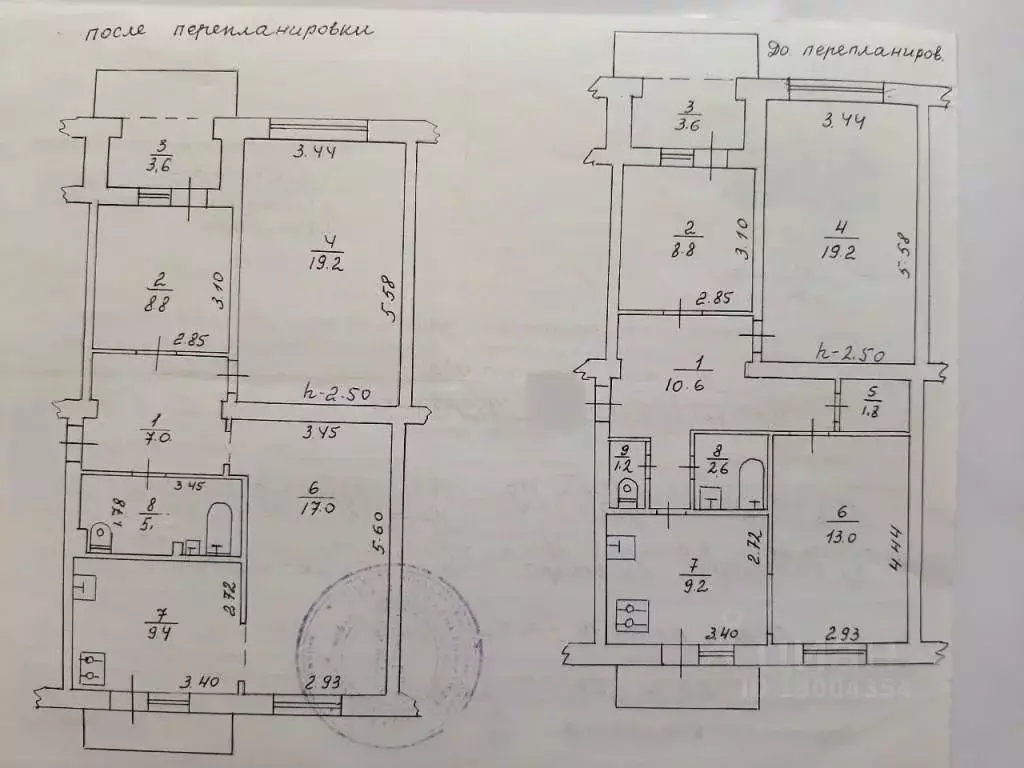 после перепланировки
До перепланиров.
3
3,6
3.44
4
19.2
5.58
2
8.8
3.10
2.85
h-2.50
1
7.0
3.45
6
17.0
5.60
3.45
8
5,
1.78
2.72
7
9.4
3.40
2.93
3
3.6
3.44
4
19.2
5.58
2
8.8
3.10
2.85
h-2.50
1
10.6
5
1.8
9
1.2
8
2.6
6
13.0
4.44
7
9.2
2.72
3.40
2.93